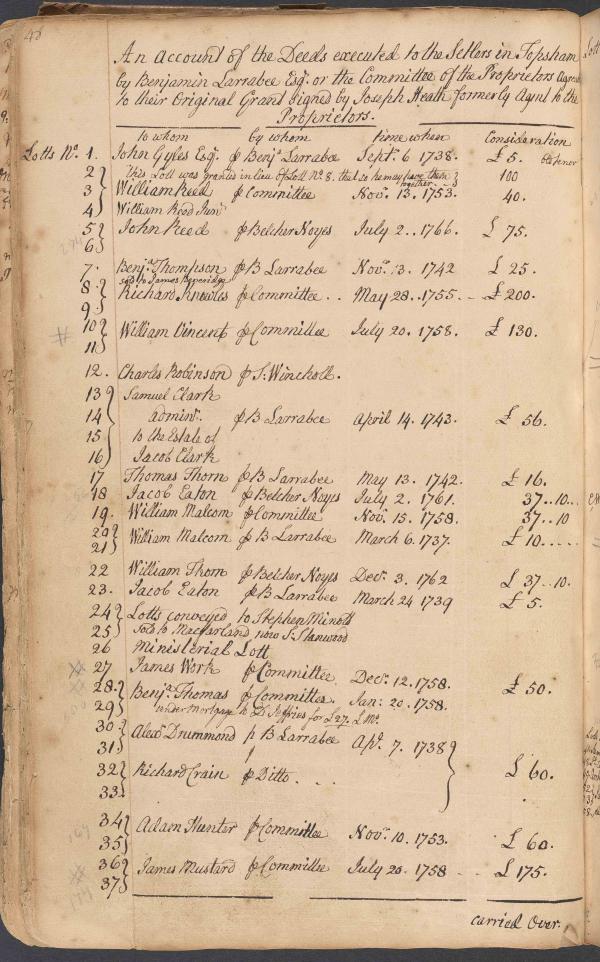 An Account of the Deeds executed to the Setlers in Topsham
by Benjamin Larrabee Esqr. or the Committee of the Proprietors Agreeable
to their Original Grant signed by Joseph Heath formerly Agent to the
Proprietors.
to whom by whom time when Consideration
Lotts No. 1. John Gyles Esqr. ⅌ Benja. Larrabee Septr. 6 1738. £ 5.
2 this Lott was granted in lieu of Lott No. 8. that so he may have them together 100
3 William Reed ⅌ Committee Novr. 13. 1753. 40.
4 William Reed Junr.
5 John Reed ⅌ Belcher Noyes July 2.. 1766. £ 75.
6
7. Benja. Thompson ⅌ B Larrabee Novr. 3. 1742 £ 25.
sold to James Beveridge
8. Richard Knowles ⅌ Committee .. May 28.. 1755.. £ 200.
9.
10 William Vincent ⅌ Committee July 20. 1758. £ 130.
11
12. Charles Robinson ⅌ S. Wincholl.
13 Samuel Clark
14 Adminr. ⅌ B Larrabee April 14. 1743. £ 56.
15 to the Estate of
16 Jacob Clark
17 Thomas Thorn ⅌ B Larrabee May 13. 1742. £ 16.
18 Jacob Eaton ⅌ Belcher Noyes July 2. 1761. 37..10..
19. William Malcom ⅌ Committee Novr. 15. 1758. 37..10
20 William Malcom ⅌ B Larrabee March 6. 1737. £ 10.....
21
22 William Thorn ⅌ Belcher Noyes Decr. 3. 1762 £ 37..10.
23. Jacob Eaton ⅌ B Larrabee March 24 1739 £ 5.
24 Lotts conveyed to Stephen Minott
25 sold to Macfarland now S. Stanwood
26 Ministerial Lott
27 James Work ⅌ Committee Decr. 12. 1758.
28. Benja. Thomas ⅌ Committee. Jan: 20. 1758. £ 50.
29 under Mortgage to Dr. Jeffries for £27. L Mo.
30 Alexr. Drummond ⅌ B Larrabee Apr. 7. 1738
31
32 Richard Crain ⅌ Ditto. .. £ 60.
33.
34 Adam Hunter ⅌ Committee Novr. 10. 1753. £ 60.
35
36 James Mustard ⅌ Committee July 20. 1758 £ 175.
37
carried Over.